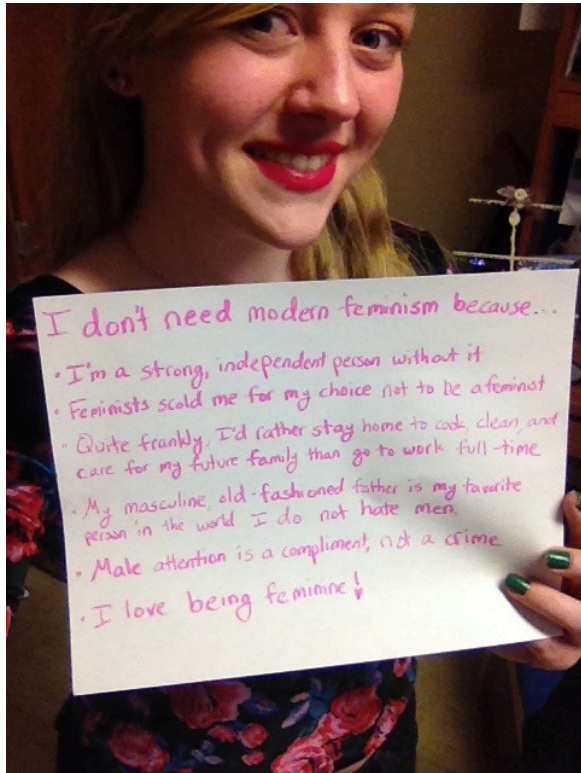 I don't need modern feminism because...
• I'm a strong, independent person without it
• Feminists scold me for my choice not to be a feminist
• Quite frankly, I'd rather stay home to cook, clean, and
care for my future family than go to work full-time
• My masculine, old-fashioned father is my favorite
person in the world I do not hate men.
• Male attention is a compliment, not a crime
• I love being feminine!